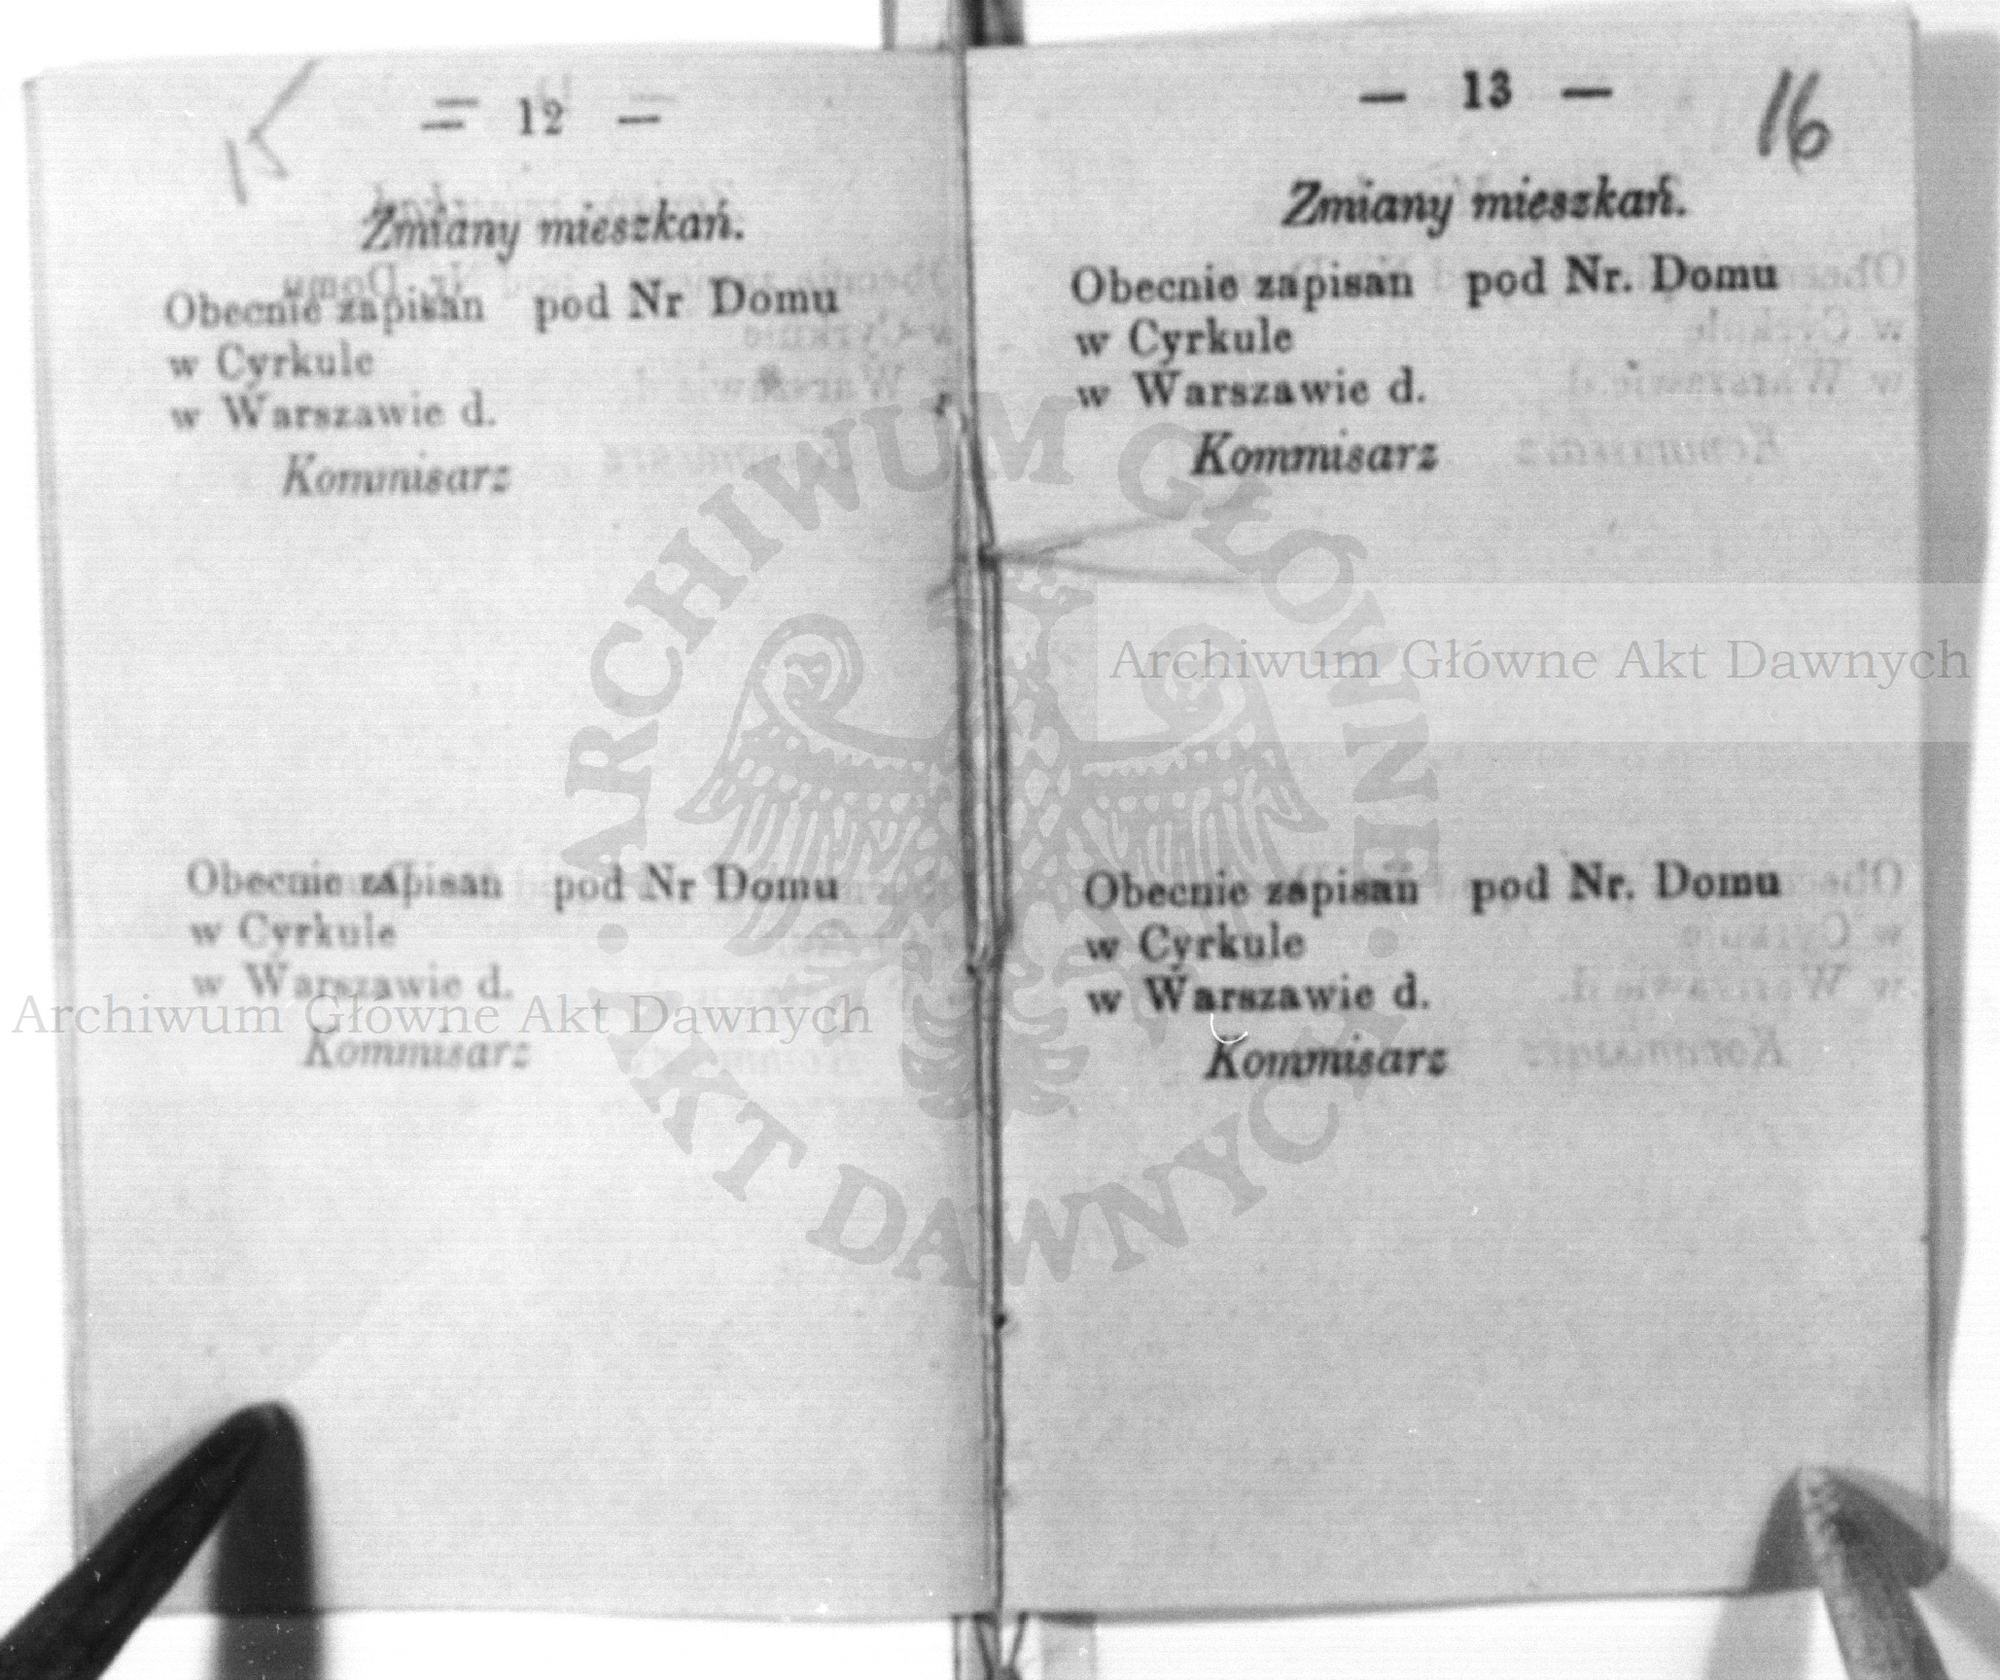 15
— 12 —
Zmiany mieszkań.
Obecnie zapisan pod Nr Domu
w Cyrkule
w Warszawie d.
Kommisarz
Obecnie zapisan pod Nr Domu
w Cyrkule
w Warszawie d.
Kommisarz
— 13 —
16
Zmiany mieszkań.
Obecnie zapisan pod Nr. Domu
w Cyrkule
w Warszawie d.
Kommisarz
Obecnie zapisan pod Nr. Domu
w Cyrkule
w Warszawie d.
Kommisarz
ARCHIWUM GŁÓWNE
AKT DAWNYCH
Archiwum Główne Akt Dawnych
Archiwum Główne Akt Dawnych